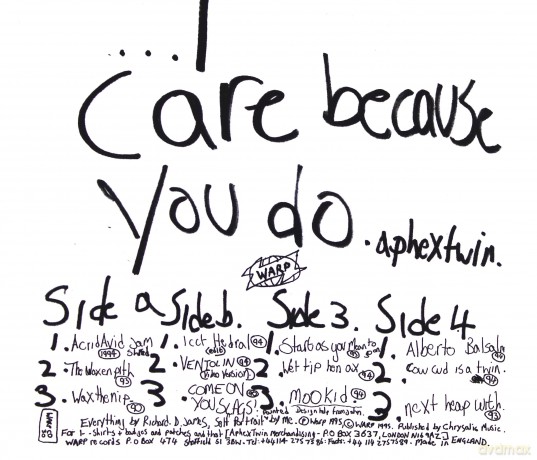 ...I
Care because
you do.
aphextwin.
WARP
Side a
1. AcridAvid Jam
Shred
1994
2. The Waxen pith
93
3. Wax the nip
90
Side b.
1. Icct Hedral
94
(edit)
2. VENTOLIN
94
(Video Version)
3. COME ON
YOU SLAGS!
Side 3.
1. Start as you Mean to
go on
2. Wet tip hen ax
94
3. Mookid
94
Side 4
1. Alberto Balsalm
94
2. Cow Cud is a twin.
94
3. next heap with.
93
Everything by Richard. D. James, Self Portrait by me. ℗ Warp 1995. © WARP 1995. Published by Chrysalis Music.
For t-Shirts + badges and patches and that [AphexTwin Merchandising - P.O BOX 3637, LONDON N19 9AZ]
WARP records P.O BOX 474 Sheffield S1 3BW. Tel: +44 114 2757586. Fax: +44 114 2757589. Made in ENGLAND.